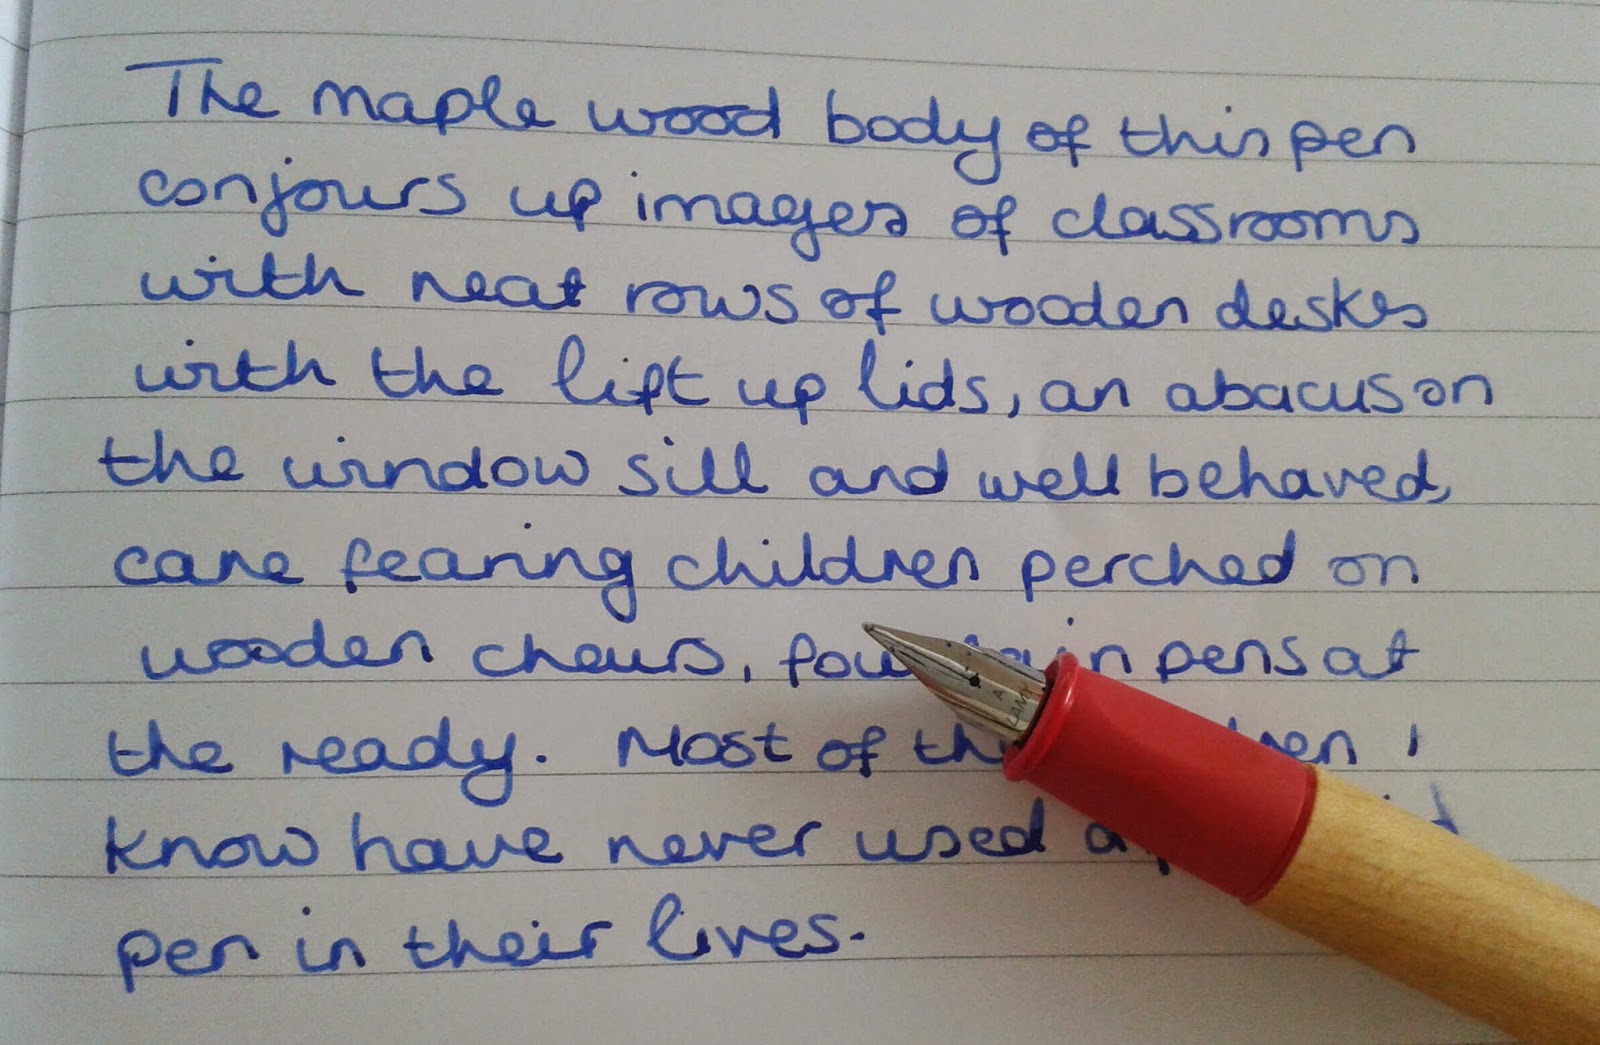 The maple wood body of this pen
conjours up images of classrooms
with neat rows of wooden desks
with the lift up lids, an abacus on
the window sill and well behaved,
cane fearing children perched on
wooden chairs, fountain pens at
the ready. Most of the children I
know have never used a
pen in their lives.
A
LAMY